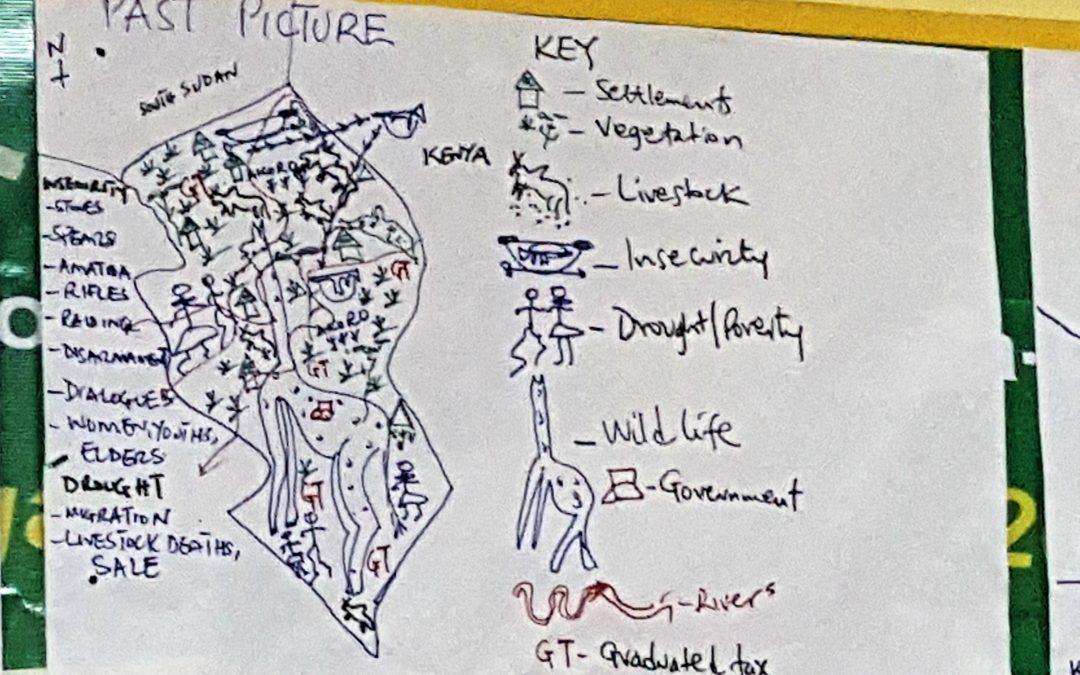 PAST PICTURE
N
SOUTH SUDAN
KENYA
INSECURITY
- SPEARS
- AMATIDA
- RIFLES
- RAIDING
- DISARMAMENT
- DIALOGUES
- WOMEN, YOUTHS,
ELDERS
DROUGHT
- MIGRATION
- LIVESTOCK DEATHS,
SALE
GT
GT
GT
GT
GT
KEY
- Settlements
- Vegetation
- Livestock
- Insecurity
- Drought/Poverty
- Wild life
- Government
- Rivers
GT - Graduated tax
2